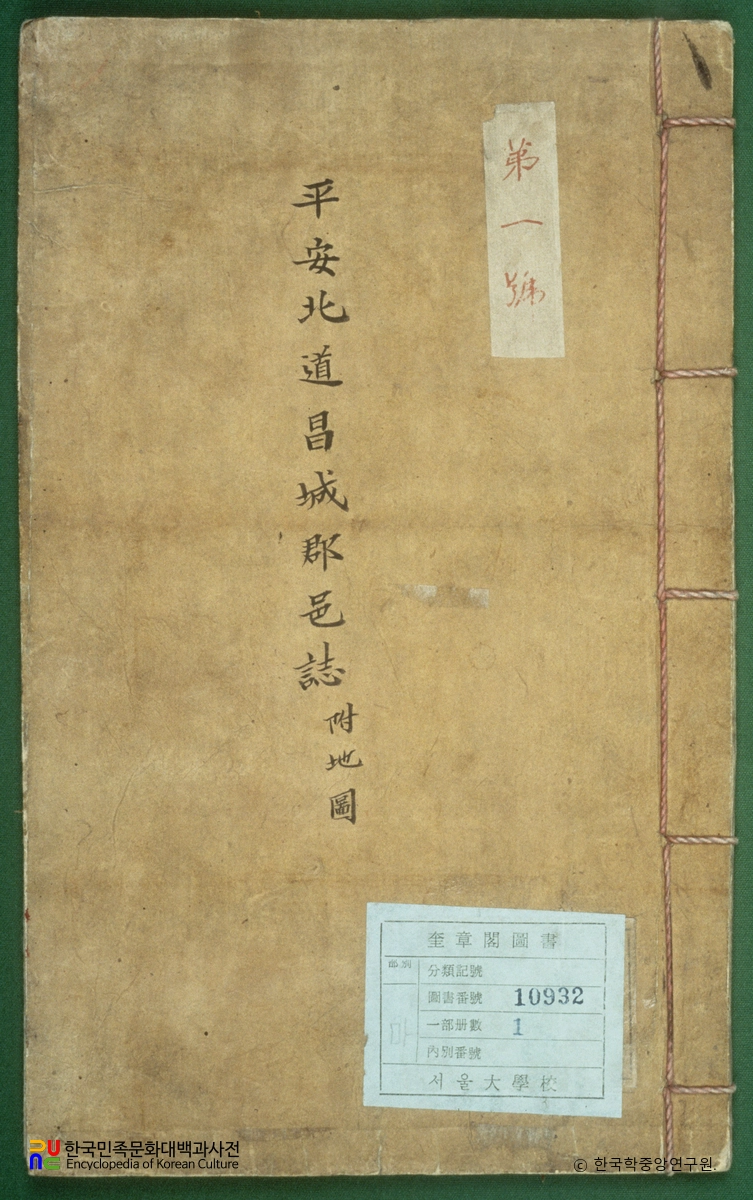 第一號
平安北道昌城郡邑誌 附地圖
奎章閣圖書
部別
分類記號
圖書番號 10932
一部册數 1
內別番號
마
서울大學校
한국민족문화대백과사전
Encyclopedia of Korean Culture
© 한국학중앙연구원.